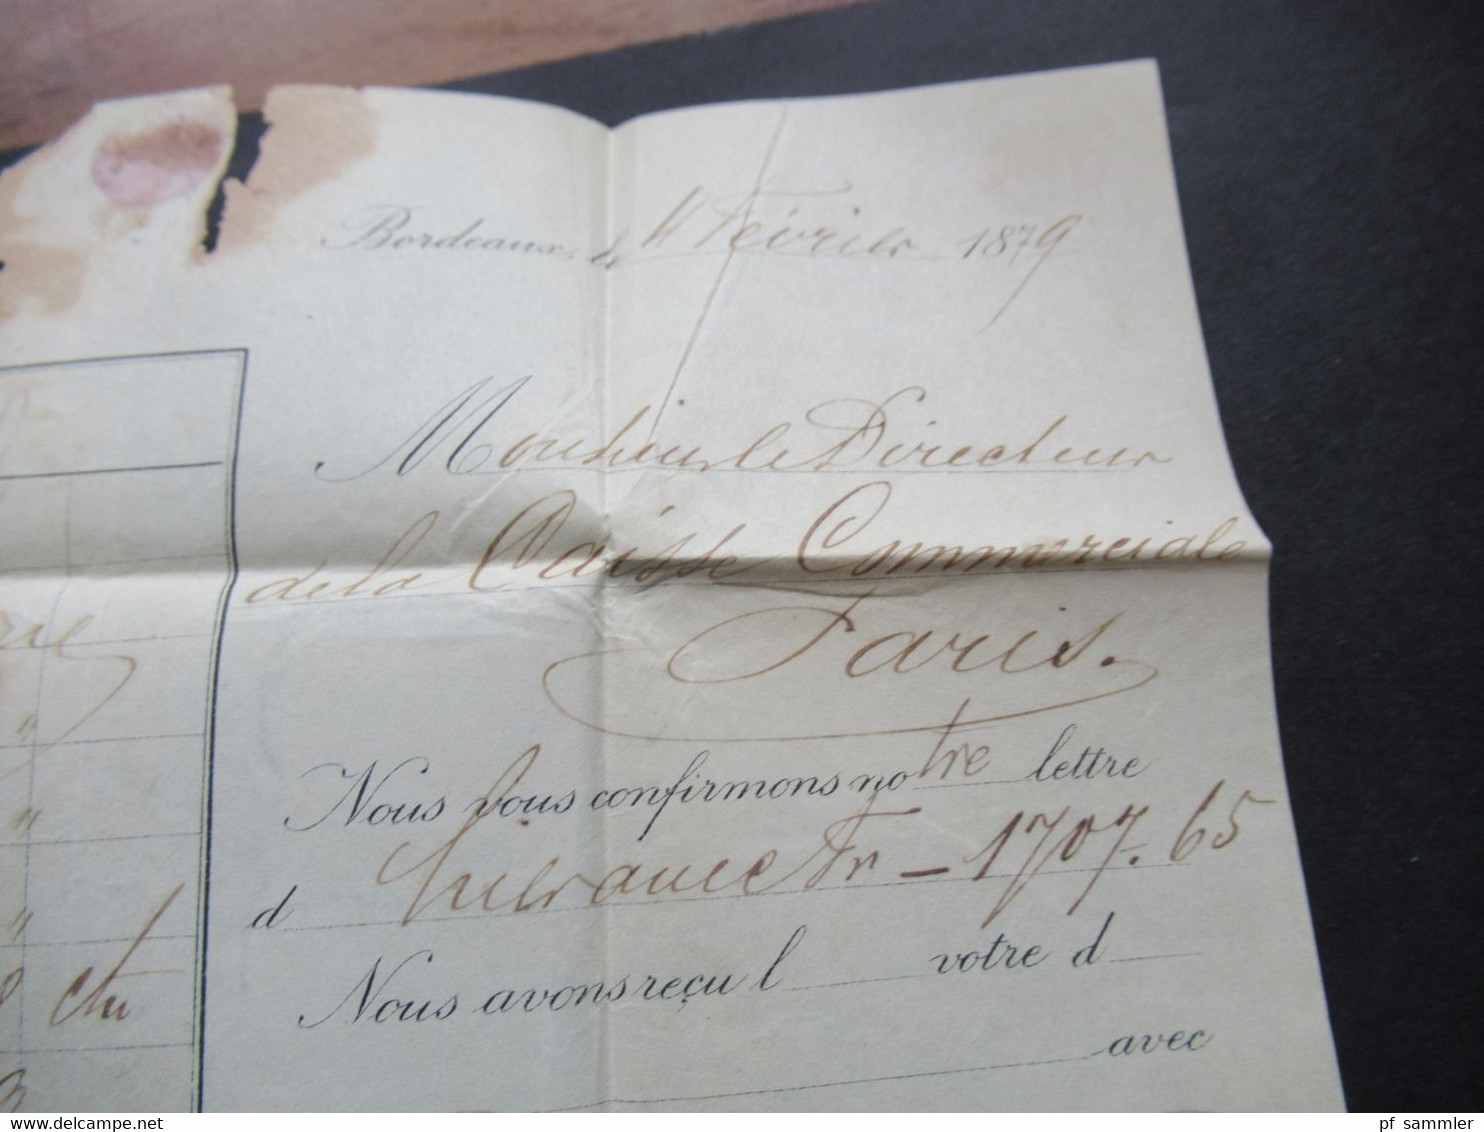 Bordeaux, le 11 Février 1879
Monsieur le Directeur
de la Caisse Commerciale
Paris.
Nous vous confirmons notre lettre
d avec Fr - 1707.65
Nous avons reçu l votre d
avec
pf_sammler